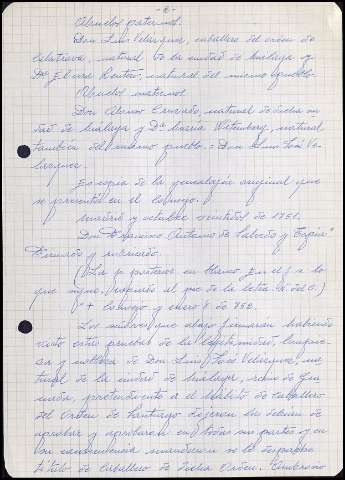 -2-
Abuelos paternos.
Don Luis Velazquez, caballero del orden de
Calatrava, natural de la ciudad de Malaga y
Dª Elvira, natural del mismo pueblo.
Abuelos maternos
Don Alonso Cruzado, natural de dicha ciu
dad de Malaga y Dª Maria, natural
tambien del mismo pueblo. = Don Luis José Ve-
lazquez.
Es copia de la genealogia original que
se presentó en el Consejo.
Madrid y octubre veintidos de 1751.
Don Antonio de Salcedo y
Firmado y rubricado.
(La p. partens en blanco
que sigue, despues al pie de la letra d.)
"+ Consejo y enero 8 de 752.
Los señores que abajo firmaran habiendo
visto estas pruebas de la legitimidad, limpie-
za y nobleza de Don Luis José Velazquez, na-
tural de la ciudad de Malaga, vecino de Gra
nada, pretendiente a el habito de caballero
del orden de Santiago dijeron las debian de
aprobar y aprobaron en todas sus partes y en
su consecuencia mandaron se le despache
titulo de caballero de dicha orden.